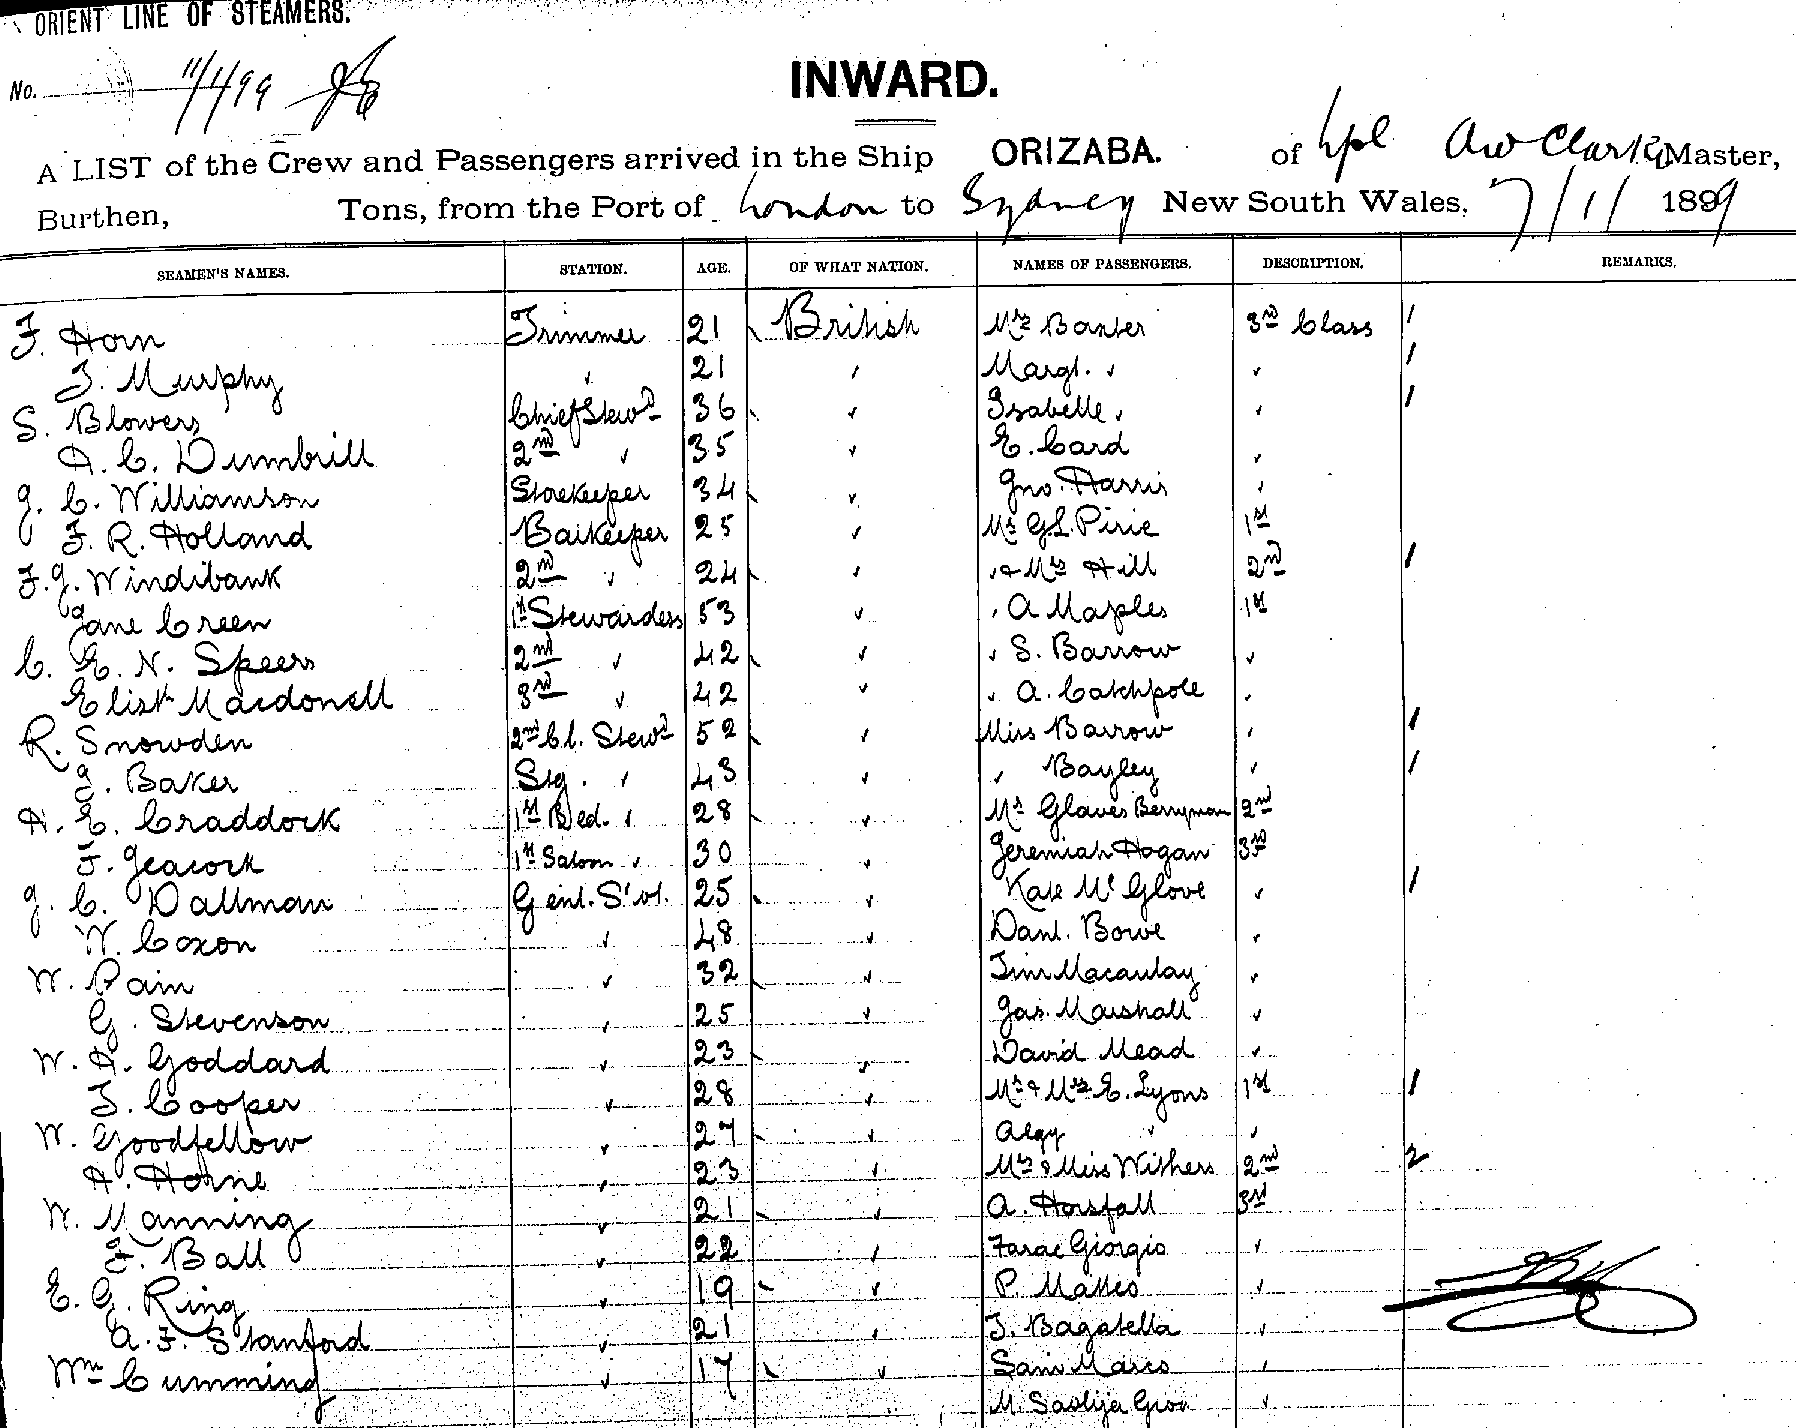 ORIENT LINE OF STEAMERS.
No. 11/1/99
INWARD.
A LIST of the Crew and Passengers arrived in the Ship ORIZABA. of Lpl A W Clarke Master,
Burthen, Tons, from the Port of London to Sydney New South Wales, 7/1/ 1899
SEAMEN'S NAMES. STATION. AGE. OF WHAT NATION. NAMES OF PASSENGERS. DESCRIPTION. REMARKS.
F. Horn Trimmer 21 British Mrs Banter 3rd Class 1
J. Murphy " 21 " Margt. " " 1
S. Blowers Chief Stewd 36 " Isabelle " " 1
A. C. Dumbrill 2nd " 35 " E. Card "
J. C. Williamson Storekeeper 34 " Jno. Harris "
F. R. Holland Barkeeper 25 " Mr G.L. Pirie 1st
F. J. Windibank 2nd " 24 " " & Mrs Hill 2nd 1
Jane Green 1st Stewardess 53 " " A Maples 1st
C. E. N. Speers 2nd " 42 " " S. Barrow "
Elist Macdonell 3rd " 42 " " A. Catchpole "
R. Snowden 2nd Cl. Stewd 52 " Miss Barrow " 1
J. Baker Stg. " 43 " " Bayley " 1
A. E. Craddock 1st Bed. " 28 " Mr Glaves Berryman 2nd
F. Jeacock 1st Saloon " 30 " Jeremiah Hogan 3rd
J. C. Dallman Genl. St. 25 " Kate McGlove " 1
W. Coxon " 48 " Danl. Bowe "
W. Pain " 32 " Jim Macaulay "
G. Stevenson " 25 " Jas. Marshall "
W. A. Goddard " 23 " David Mead "
J. Cooper " 28 " Mr & Mrs E. Lyons 1st 1
W. Goodfellow " 27 " Algy " "
A. Horne " 23 " Mrs & Miss Withers 2nd 2
W. Manning " 21 " A. Horsfall 3rd
F. Ball " 22 " Farae Giorgio "
E. G. Ring " 19 " P. Matteo "
A. F. Stanford " 21 " J. Bagatella "
Wm Cumming " 17 " Sain Marco "
M. "